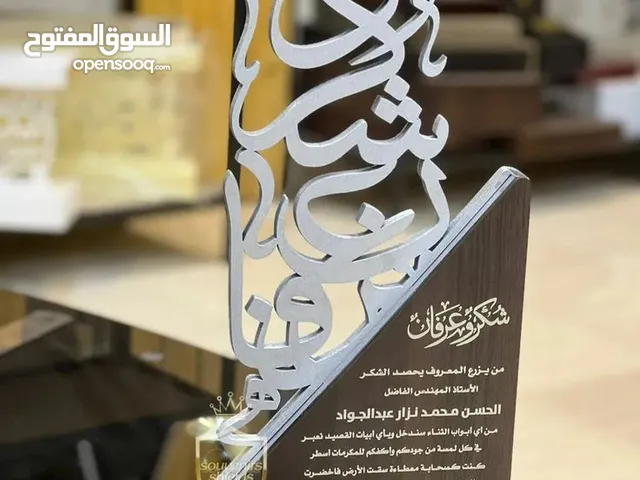 السوق المفتوح
opensooq.com
شكر وعرفان
شكر وعرفان
من يزرع المعروف يحصد الشكر
الأستاذ المهندس الفاضل
الحسن محمد نزار عبدالجواد
من اي أبواب الثناء سندخل وبأي ابيات القصيد نعبر
في كل لمسة من جودكم وأكفكم للمكرمات اسطر
كنت كسحابة معطاءة سقت الأرض فاخضرت
souvenirs
shields